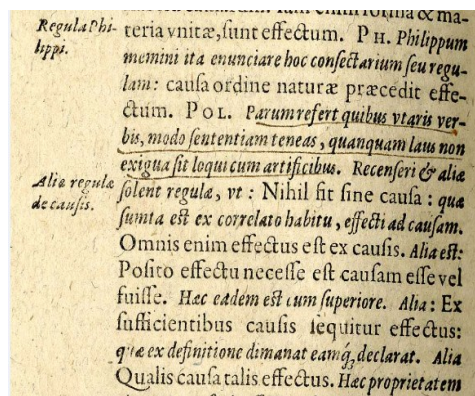 Regula Phi-
lippi.
teria vnitæ, sunt effectum. PH. Philippum
memini ita enunciare hoc consectarium seu regu-
lam: causa ordine naturæ præcedit effe-
ctum. POL. Parum refert quibus vtaris ver-
bis, modo sententiam teneas, quanquam laus non
exigua sit loqui cum artificibus. Recenseri & aliæ
Aliæ regulæ
de causis.
solent regulæ, vt: Nihil fit sine causa: quæ
sumta est ex correlato habitu, effecti ad causam.
Omnis enim effectus est ex causis. Alia est:
Posito effectu necesse est causam esse vel
fuisse. Hæc eadem est cum superiore. Alia: Ex
sufficientibus causis sequitur effectus:
quæ ex definitione dimanat eamq́; declarat. Alia
Qualis causa talis effectus. Hæc proprietatem